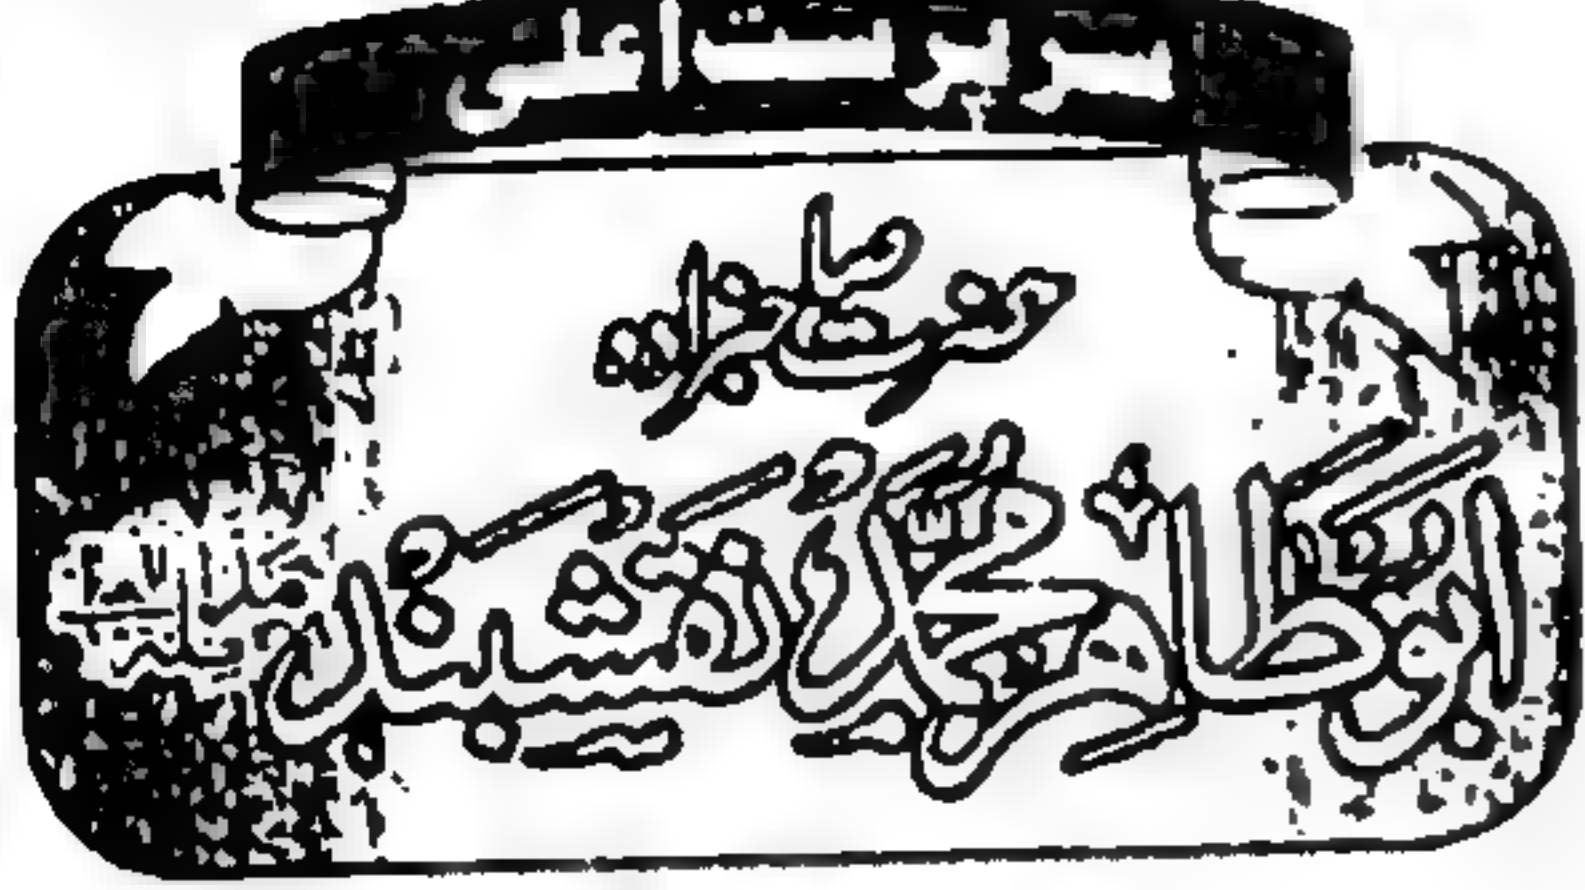 سرپرست اعلیٰ
حضرت صاحبزادہ
ابو طاہر محمد نقشبند